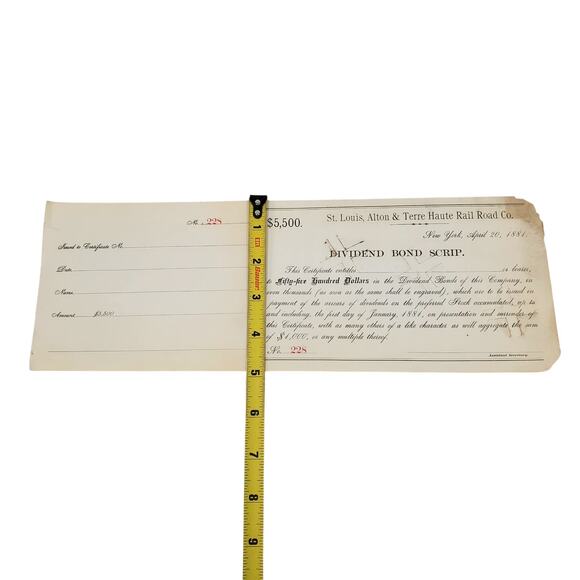 No. 228
Issued to Certificate No.
Date
Name
Amount $5,500
$5,500.
St. Louis, Alton & Terre Haute Rail Road Co.
New York, April 20, 1881.
DIVIDEND BOND SCRIP.
This Certificate entitles or bearer,
to Fifty-five Hundred Dollars in the Dividend Bonds of this Company, in
even thousands (as soon as the same shall be engraved), which are to be issued in
payment of the arrears of dividends on the preferred Stock accumulated, up to
and including, the first day of January, 1881, on presentation and surrender of
this Certificate, with as many others of a like character as will aggregate the sum
of $1,000, or any multiple thereof.
No. 228
Assistant Secretary.
1
2
3
4
5
6
7
8
9